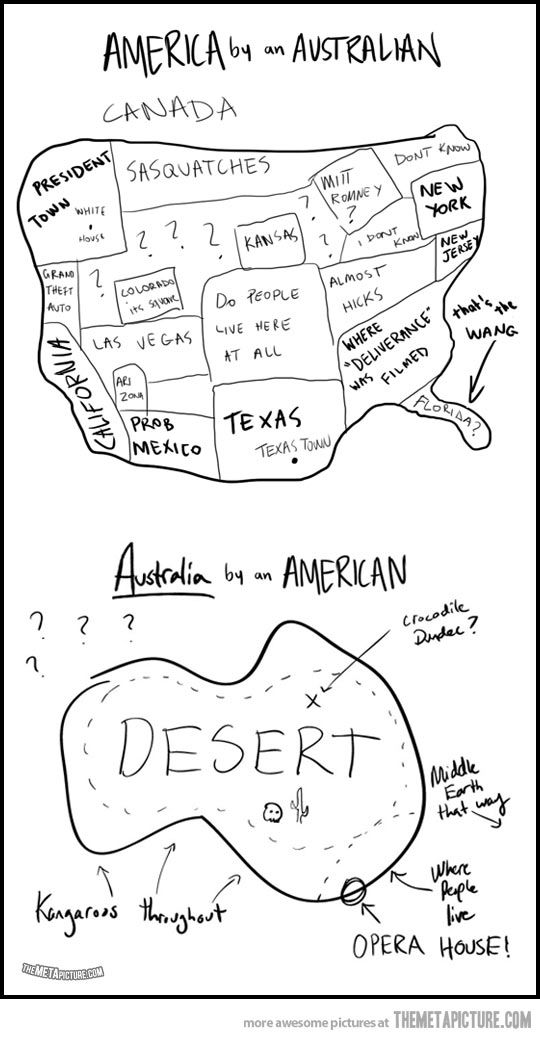 AMERICA by an AUSTRALIAN
CANADA
PRESIDENT
TOWN
WHITE
HOUSE
SASQUATCHES
MITT
ROMNEY
?
DONT KNOW
NEW
YORK
? ? ?
KANSAS
?
?
I DONT
KNOW
NEW
JERSEY
GRAND
THEFT
AUTO
?
COLORADO
its square
DO PEOPLE
LIVE HERE
AT ALL
ALMOST
HICKS
that's the
WANG
LAS VEGAS
WHERE
"DELIVERANCE"
WAS FILMED
CALIFORNIA
ARI
ZONA
PROB
MEXICO
TEXAS
TEXAS TOWN
FLORIDA?
Australia by an AMERICAN
? ? ?
?
Crocodile
Dundee?
x
DESERT
Middle
Earth
that way
Where
People
live
Kangaroos throughout
OPERA HOUSE!
THEMETAPICTURE.COM
more awesome pictures at THEMETAPICTURE.COM